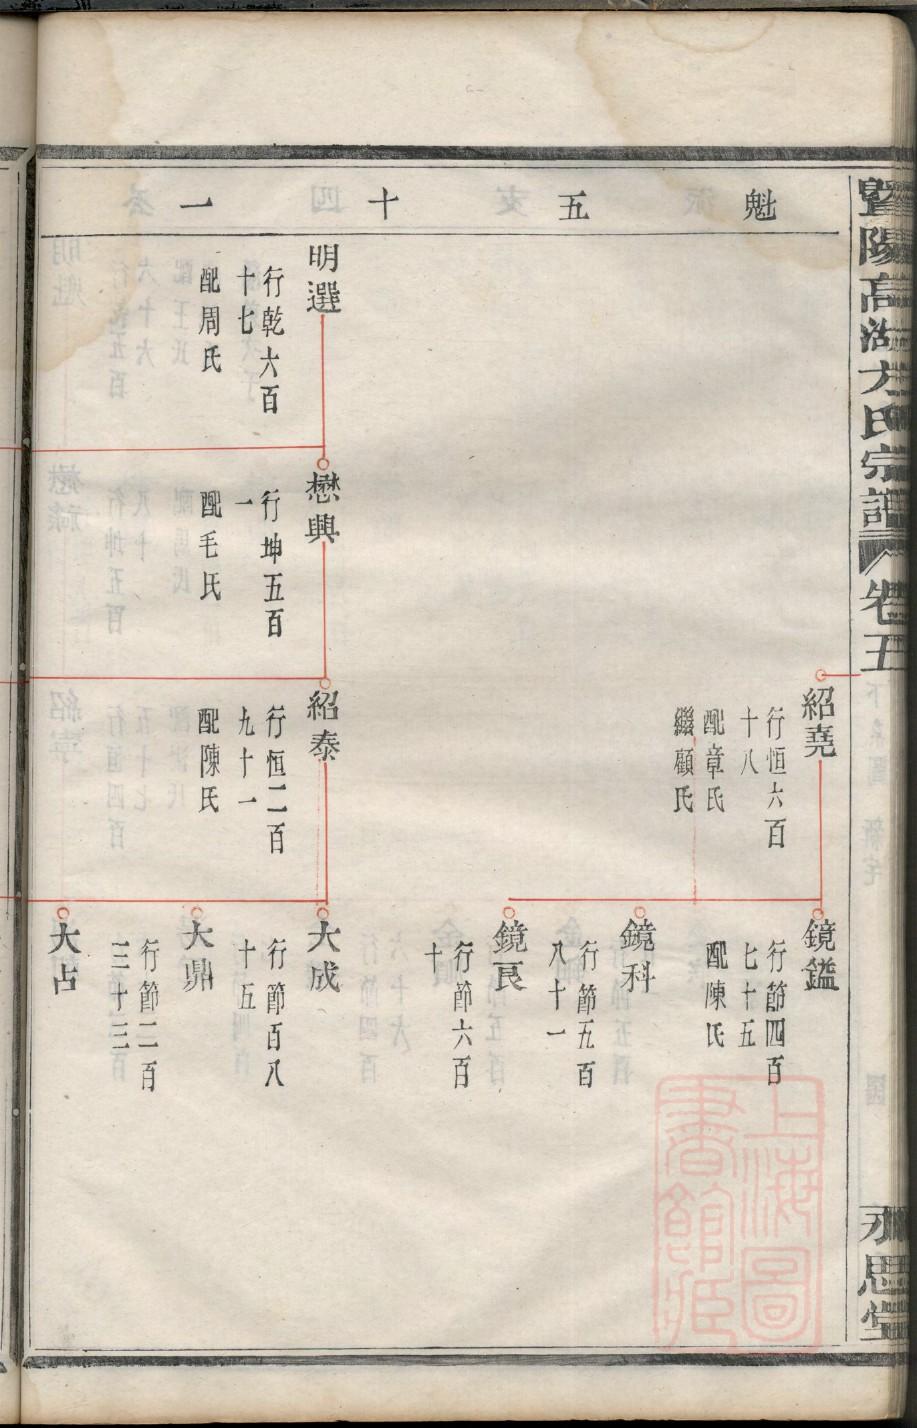 暨陽高湖方氏宗譜 卷五
永思堂
魁 五 十 一
紹堯
行恒六百
十八
配章氏
繼顧氏
鏡鎰
行節四百
七十五
配陳氏
鏡科
行節五百
八十一
鏡良
行節六百
十
明選
行乾六百
十七
配周氏
懋興
行坤五百
一
配毛氏
紹泰
行恒二百
九十一
配陳氏
大成
行節百八
十五
大鼎
行節二百
三十三
大占
上海圖
書館藏